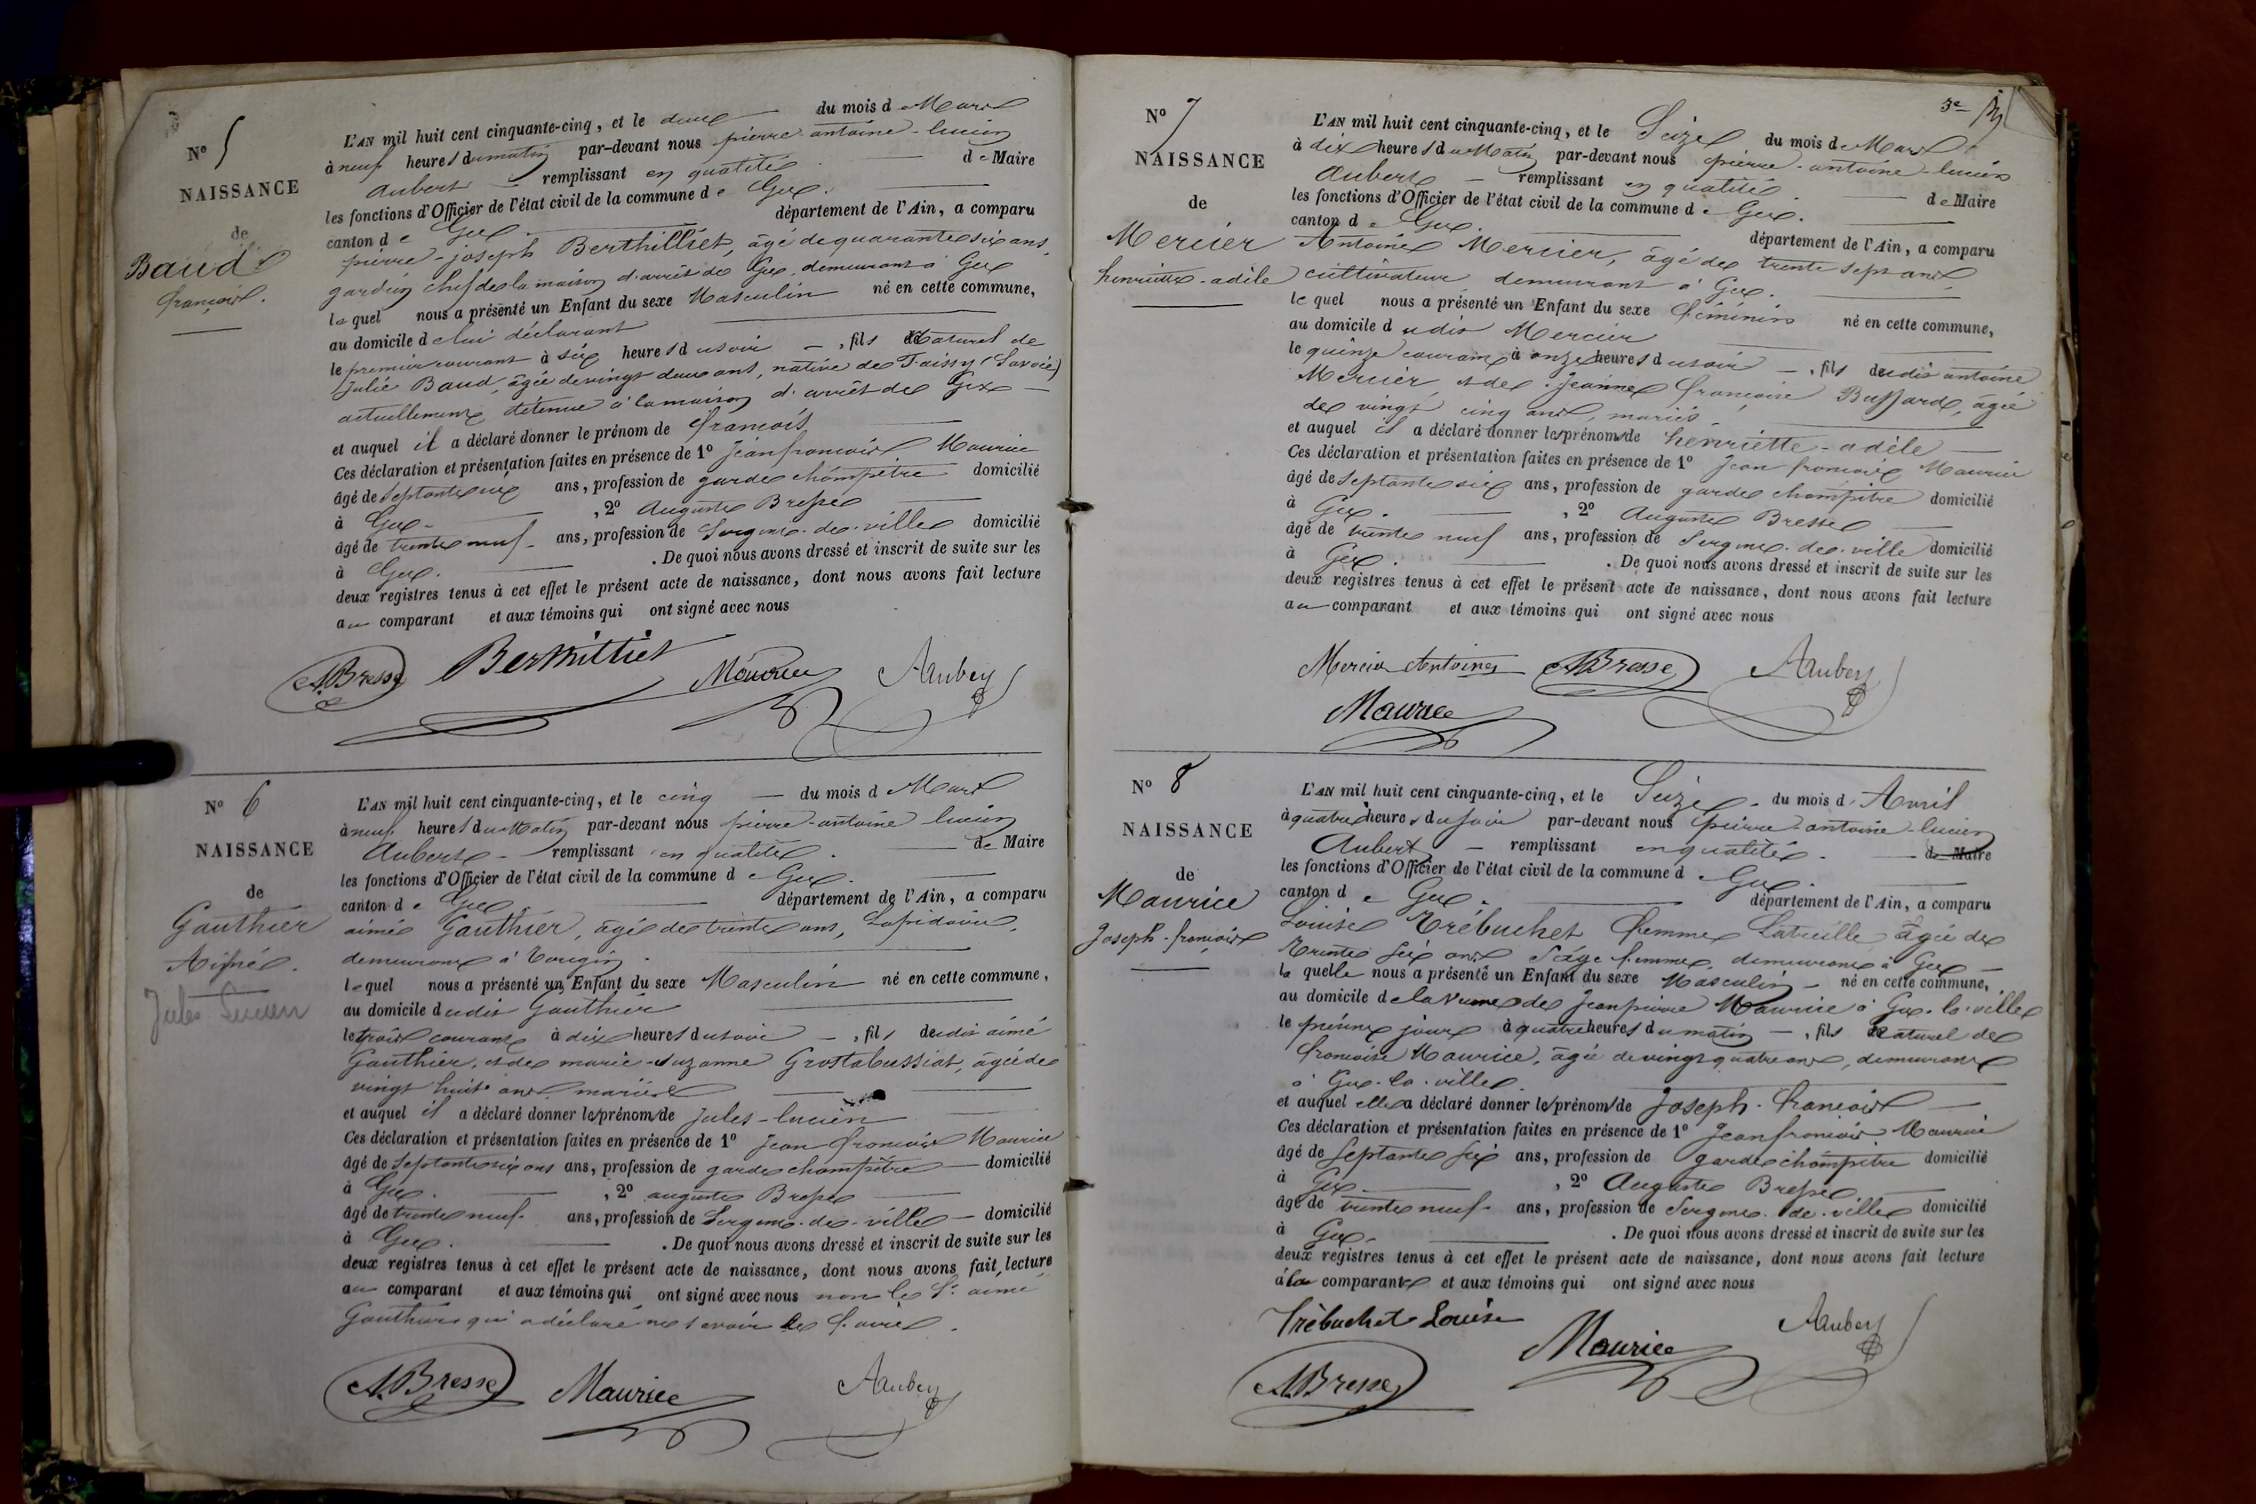 N° 5
NAISSANCE
de
Baud
françois.
L'AN mil huit cent cinquante-cinq, et le deux du mois de Mars
à neuf heures du matin par-devant nous pierre-antoine-lucien
Aubert remplissant en qualité de Maire
les fonctions d'Officier de l'état civil de la commune de Gex.
canton de Gex département de l'Ain, a comparu
pierre-joseph Berthilliet, âgé de quarante six ans,
gardien chef de la maison d'arrêt de Gex, demeurant à Gex
lequel nous a présenté un Enfant du sexe Masculin né en cette commune,
au domicile de lui déclarant
le premier courant à six heures du soir, fils naturel de
Julie Baud, âgée de vingt deux ans, native de (Savoie)
actuellement détenue à la maison d'arrêt de Gex
et auquel il a déclaré donner le prénom de françois
Ces déclaration et présentation faites en présence de 1° Jean françois Maurice
âgé de Septante six ans, profession de garde champêtre domicilié
à Gex. , 2° Auguste Bresse
âgé de trente neuf ans, profession de Sergent-de-ville domicilié
à Gex. . De quoi nous avons dressé et inscrit de suite sur les
deux registres tenus à cet effet le présent acte de naissance, dont nous avons fait lecture
au comparant et aux témoins qui ont signé avec nous
ABresse Berthilliet Maurice Aubert
N° 6
NAISSANCE
de
Gauthier
Aimé.
Jules Lucien
L'AN mil huit cent cinquante-cinq, et le cinq du mois de Mars
à neuf heures du Matin par-devant nous pierre-antoine lucien
Aubert remplissant en qualité de Maire
les fonctions d'Officier de l'état civil de la commune de Gex.
canton de Gex département de l'Ain, a comparu
aimé Gauthier, âgé de trente ans, Lapidaire,
demeurant à
lequel nous a présenté un Enfant du sexe Masculin né en cette commune,
au domicile dudit Gauthier
le trois courant à dix heures du soir, fils dudit aimé
Gauthier, et de marie-suzanne Grostabussiat, âgée de
vingt huit ans mariés
et auquel il a déclaré donner les prénoms de Jules-lucien
Ces déclaration et présentation faites en présence de 1° Jean françois Maurice
âgé de Septante six ans ans, profession de garde champêtre domicilié
à Gex. , 2° auguste Bresse
âgé de trente neuf ans, profession de Sergent-de-ville domicilié
à Gex. . De quoi nous avons dressé et inscrit de suite sur les
deux registres tenus à cet effet le présent acte de naissance, dont nous avons fait lecture
au comparant et aux témoins qui ont signé avec nous non le Sr. aimé
Gauthier qui a déclaré ne savoir le faire.
ABresse Maurice Aubert
3e
N° 7
NAISSANCE
de
Mercier
henriette-adèle
L'AN mil huit cent cinquante-cinq, et le Seize du mois de Mars
à dix heures du Matin par-devant nous pierre-antoine-lucien
Aubert remplissant en qualité de Maire
les fonctions d'Officier de l'état civil de la commune de Gex.
canton de Gex. département de l'Ain, a comparu
Antoine Mercier, âgé de trente sept ans
cultivateur demeurant à Gex.
lequel nous a présenté un Enfant du sexe féminin né en cette commune,
au domicile dudit Mercier
le quinze courant à onze heures du soir, fils dudit antoine
Mercier et de Jeanne françoise Buffard, âgée
de vingt cinq ans, mariés
et auquel il a déclaré donner les prénoms de henriette-adèle
Ces déclaration et présentation faites en présence de 1° Jean françois Maurice
âgé de Septante six ans, profession de garde champêtre domicilié
à Gex. , 2° Auguste Bresse
âgé de trente neuf ans, profession de Sergent-de-ville domicilié
à Gex. . De quoi nous avons dressé et inscrit de suite sur les
deux registres tenus à cet effet le présent acte de naissance, dont nous avons fait lecture
au comparant et aux témoins qui ont signé avec nous
Mercier Antoine ABresse Aubert
Maurice
N° 8
NAISSANCE
de
Maurice
Joseph-françois
L'AN mil huit cent cinquante-cinq, et le Seize du mois d'Avril
à quatre heures du soir par-devant nous pierre-antoine-lucien
Aubert remplissant en qualité de Maire
les fonctions d'Officier de l'état civil de la commune de Gex.
canton de Gex. département de l'Ain, a comparu
Louise Trébuchet femme Latreille âgée de
Trente six ans Sage femme, demeurant à Gex
laquelle nous a présenté un Enfant du sexe Masculin né en cette commune,
au domicile de la veuve de Jean pierre Maurice à Gex-la-ville
le présent jour à quatre heures du matin, fils naturel de
françoise Maurice, âgée de vingt quatre ans, demeurant
à Gex-la-ville
et auquel elle a déclaré donner les prénoms de Joseph-françois
Ces déclaration et présentation faites en présence de 1° Jean françois Maurice
âgé de Septante six ans, profession de garde champêtre domicilié
à Gex , 2° Auguste Bresse
âgé de trente neuf ans, profession de Sergent de ville domicilié
à Gex. . De quoi nous avons dressé et inscrit de suite sur les
deux registres tenus à cet effet le présent acte de naissance, dont nous avons fait lecture
à la comparante et aux témoins qui ont signé avec nous
Trébuchet Louise Maurice Aubert
ABresse